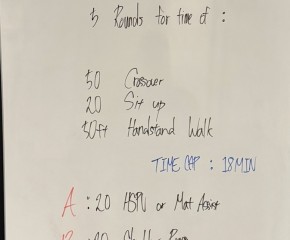 5 Rounds for time of :
50 Crossover
20 Sit up
50ft Handstand Walk
TIME CAP : 18 MIN
A : 20 HSPU or Mat Assist